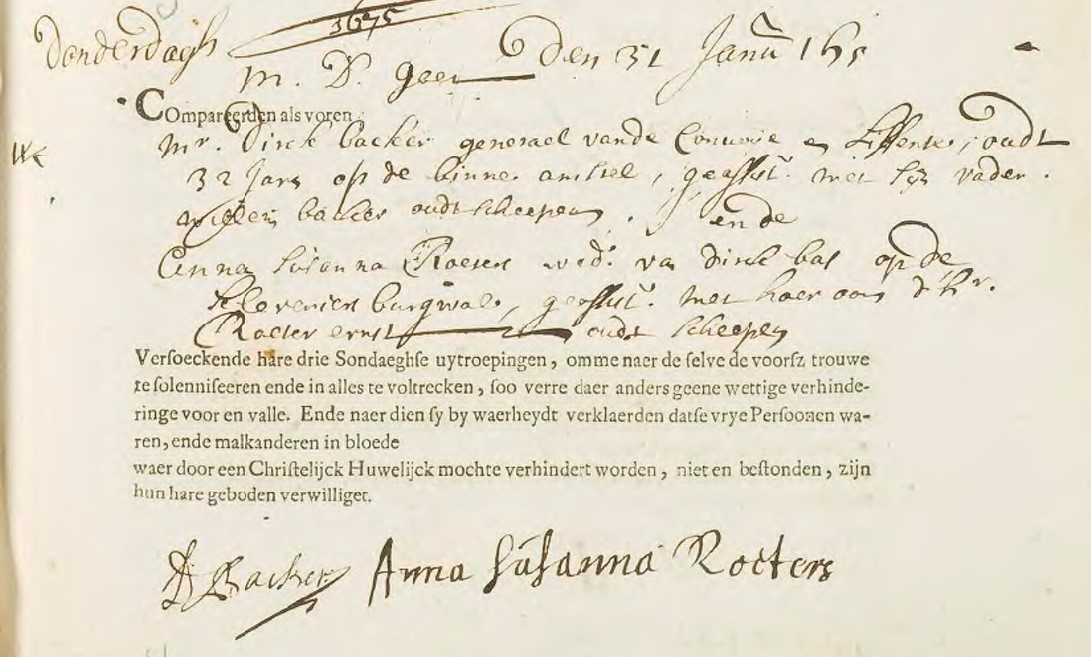 1675
Donderdagh Den 31 Janu 165
M. D. geer
COmpareerden als voren
Mr. Dirck backer generael vande Convoie en Lissente, oudt
32 Jare op de binne amstel, geassist. met sijn vader
Willem backer oudt scheepen. ende
Anna Susanna Roeters wed. va dirck bas op de
kleveniers burgwal, geassist. met haer oom d hr.
Roeter ernst oudt scheepen
Versoeckende hare drie Sondaeghse uytroepingen, omme naer de selve de voorsz trouwe
te solenniseeren ende in alles te voltrecken, soo verre daer anders geene wettige verhinde-
ringe voor en valle. Ende naer dien sy by waerheydt verklaerden datse vrye Persoonen wa-
ren, ende malkanderen in bloede
waer door een Christelijck Huwelijck mochte verhindert worden, niet en bestonden, zijn
hun hare geboden verwilliget.
D Backer Anna Susanna Roeters